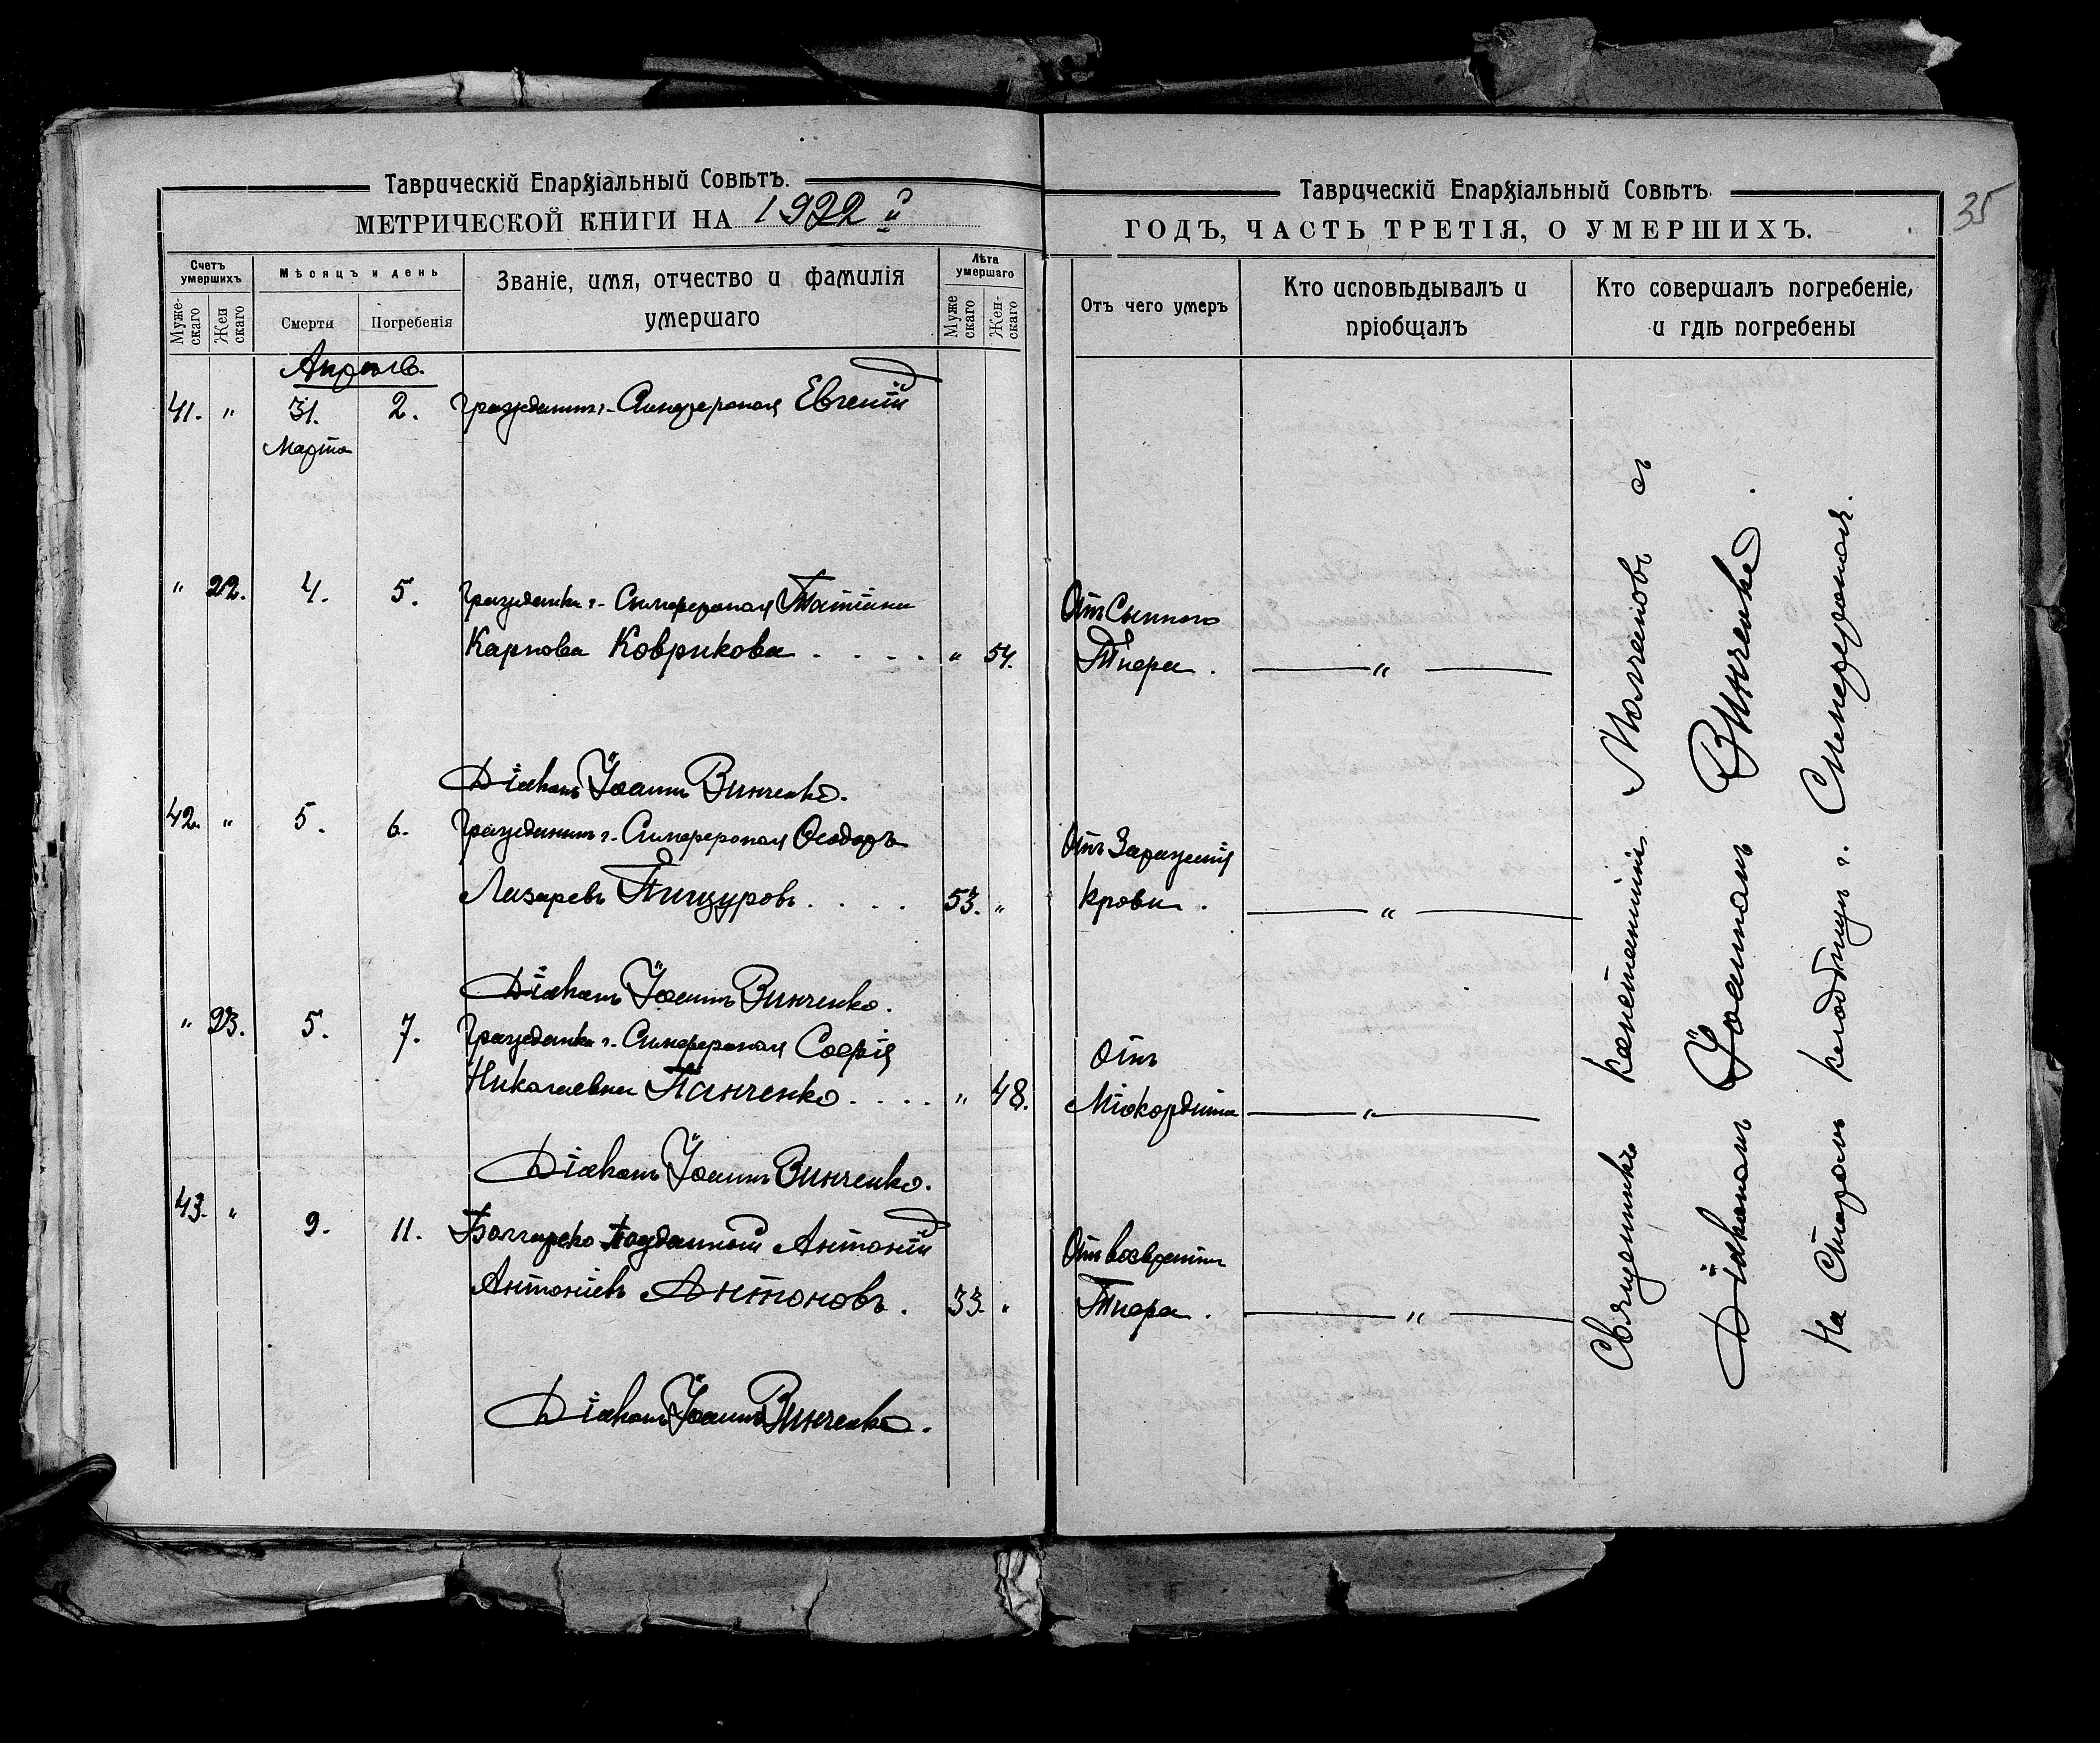 Таврическій Епархіальный Совѣтъ.
МЕТРИЧЕСКОЙ КНИГИ НА 1922 й
Счетъ умершихъ
Мѣсяцъ и день
Званіе, имя, отчество и фамилія умершаго
Лѣта умершаго
Мужескаго
Женскаго
Смерти
Погребенія
Мужескаго
Женскаго
Апрѣль.
41. " 31. 2. Гражданинъ г. Симферополя Евгеній
Марта
" 22. 4. 5. Гражданка г. Симферополя Татіана
Карпова Коврикова . . . . " 54.
Діаконъ Іоаннъ Винченко.
42. " 5. 6. Гражданинъ г. Симферополя Ѳеодоръ
Лазаревъ Пищуровъ. . . . 53. "
Діаконъ Іоаннъ Винченко.
" 23. 5. 7. Гражданка г. Симферополя Софія
Николаевна Панченко . . . . " 48.
Діаконъ Іоаннъ Винченко.
43. " 9. 11. Болгарско Подданный Антоній
Антоніевъ Антоновъ. 33. "
Діаконъ Іоаннъ Винченко.
35
Таврическій Епархіальный Совѣтъ.
ГОДЪ, ЧАСТЬ ТРЕТІЯ, О УМЕРШИХЪ.
Отъ чего умеръ
Кто исповѣдывалъ и пріобщалъ
Кто совершалъ погребеніе, и гдѣ погребены
Отъ Сыпного
Тифа. "
Отъ Зараженія
крови. "
Отъ
Міокордита "
Отъ возвратн
Тифа. "
Священникъ Константинъ Молчановъ съ
Діакономъ Іоанномъ Винченко.
На Старомъ кладбищѣ г. Симферополя.